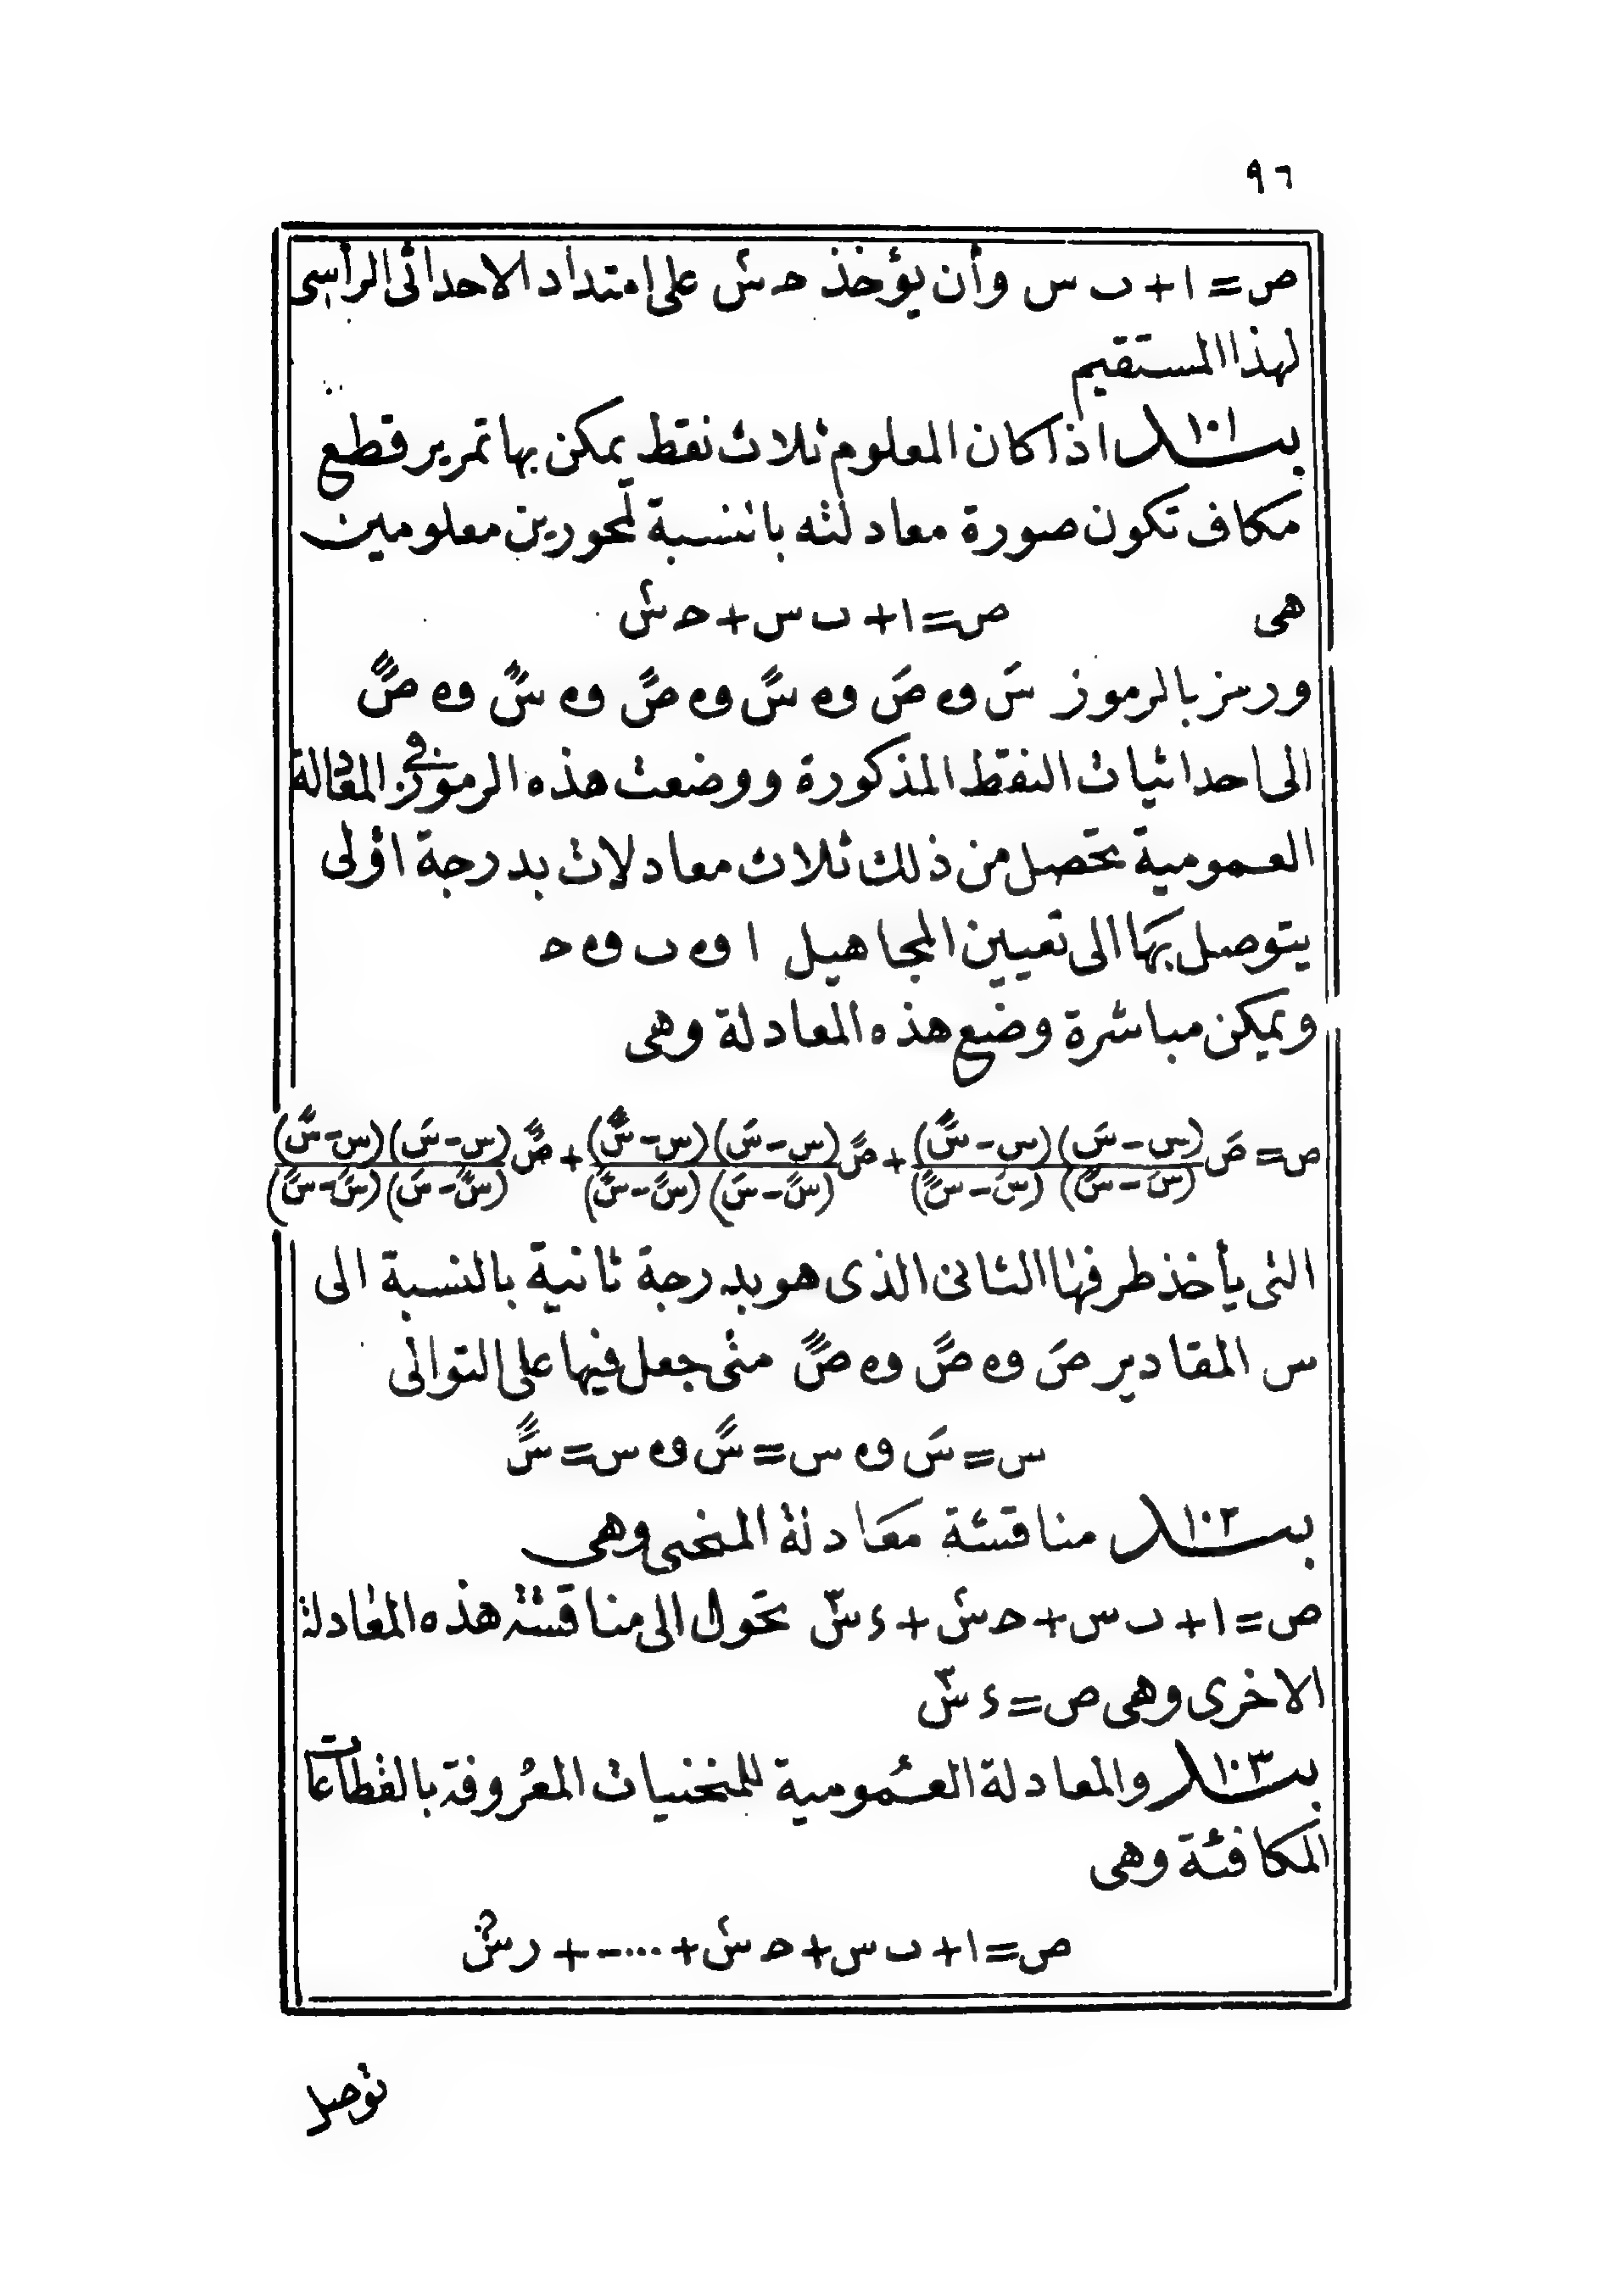 ٩٦
ص = ا + ب س وأن يؤخذ حـ س٢ على امتداد الاحداثى الرأسى
لهذا المستقيم
بند ١٠١ اذا كان المعلوم ثلاث نقط يمكن بها تمرير قطع
مكاف تكون صورة معادلته بالنسبة لمحورين معلومين
هى ص = ا + ب س + حـ س٢
ورمز بالرموز سَ و صَ و سً و صً و س‴ و ص‴
الى احداثيات النقط المذكورة ووضعت هذه الرموز فى المعادلة
العمومية تحصل من ذلك ثلاث معادلات بدرجة اولى
يتوصل بها الى تعيين المجاهيل ا و ب و حـ
ويمكن مباشرة وضع هذه المعادلة وهى
ص = صَ (س − س″)(س − س‴) / (سَ − س″)(سَ − س‴) + ص″ (س − سَ)(س − س‴) / (س″ − سَ)(س″ − س‴) + ص‴ (س − سَ)(س − س″) / (س‴ − سَ)(س‴ − س″)
التى يأخذ طرفها الثانى الذى هو بدرجة ثانية بالنسبة الى
س المقادير صَ و ص″ و ص‴ متى جعل فيها على التوالى
س = سَ و س = س″ و س = س‴
بند ١٠٢ مناقشة معادلة المنحنى وهى
ص = ا + ب س + حـ س٢ + ء س٣ تحول الى مناقشة هذه المعادلة
الاخرى وهى ص = ء س٣
بند ١٠٣ والمعادلة العمومية للمنحنيات المعروفة بالقطاعات
المكافئة وهى
ص = ا + ب س + حـ س٢ + .... + ر سم
توصل